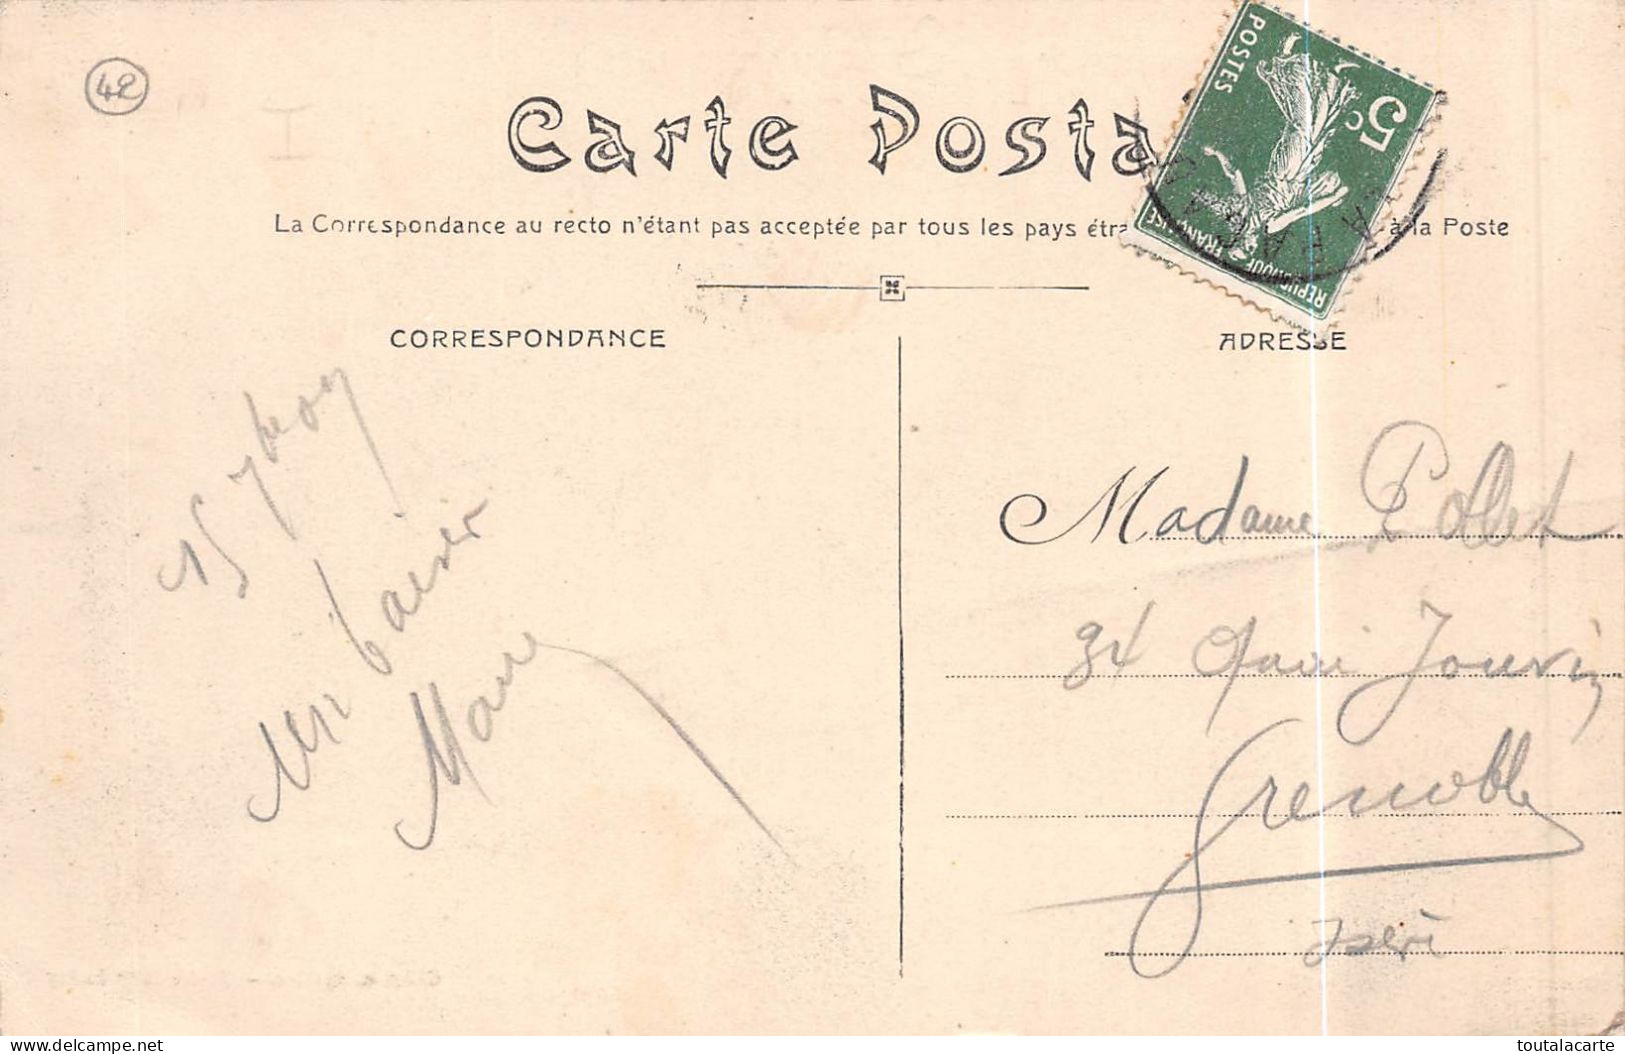 42
I
Carte Posta
La Correspondance au recto n'étant pas acceptée par tous les pays étra à la Poste
POSTES
5c
REPUBLIQUE FRANÇAISE
CORRESPONDANCE
ADRESSE
15 7bre 09
Un baiser
Marie
Madame Pollet
34 Quai Jouvin
Grenoble
Isère
toutalacarte
delcampe.net